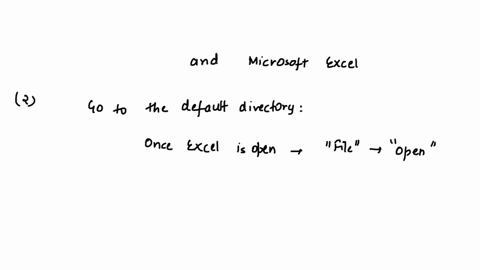 and Microsoft Excel
(2) Go to the default directory:
Once Excel is open → "File" → "Open"